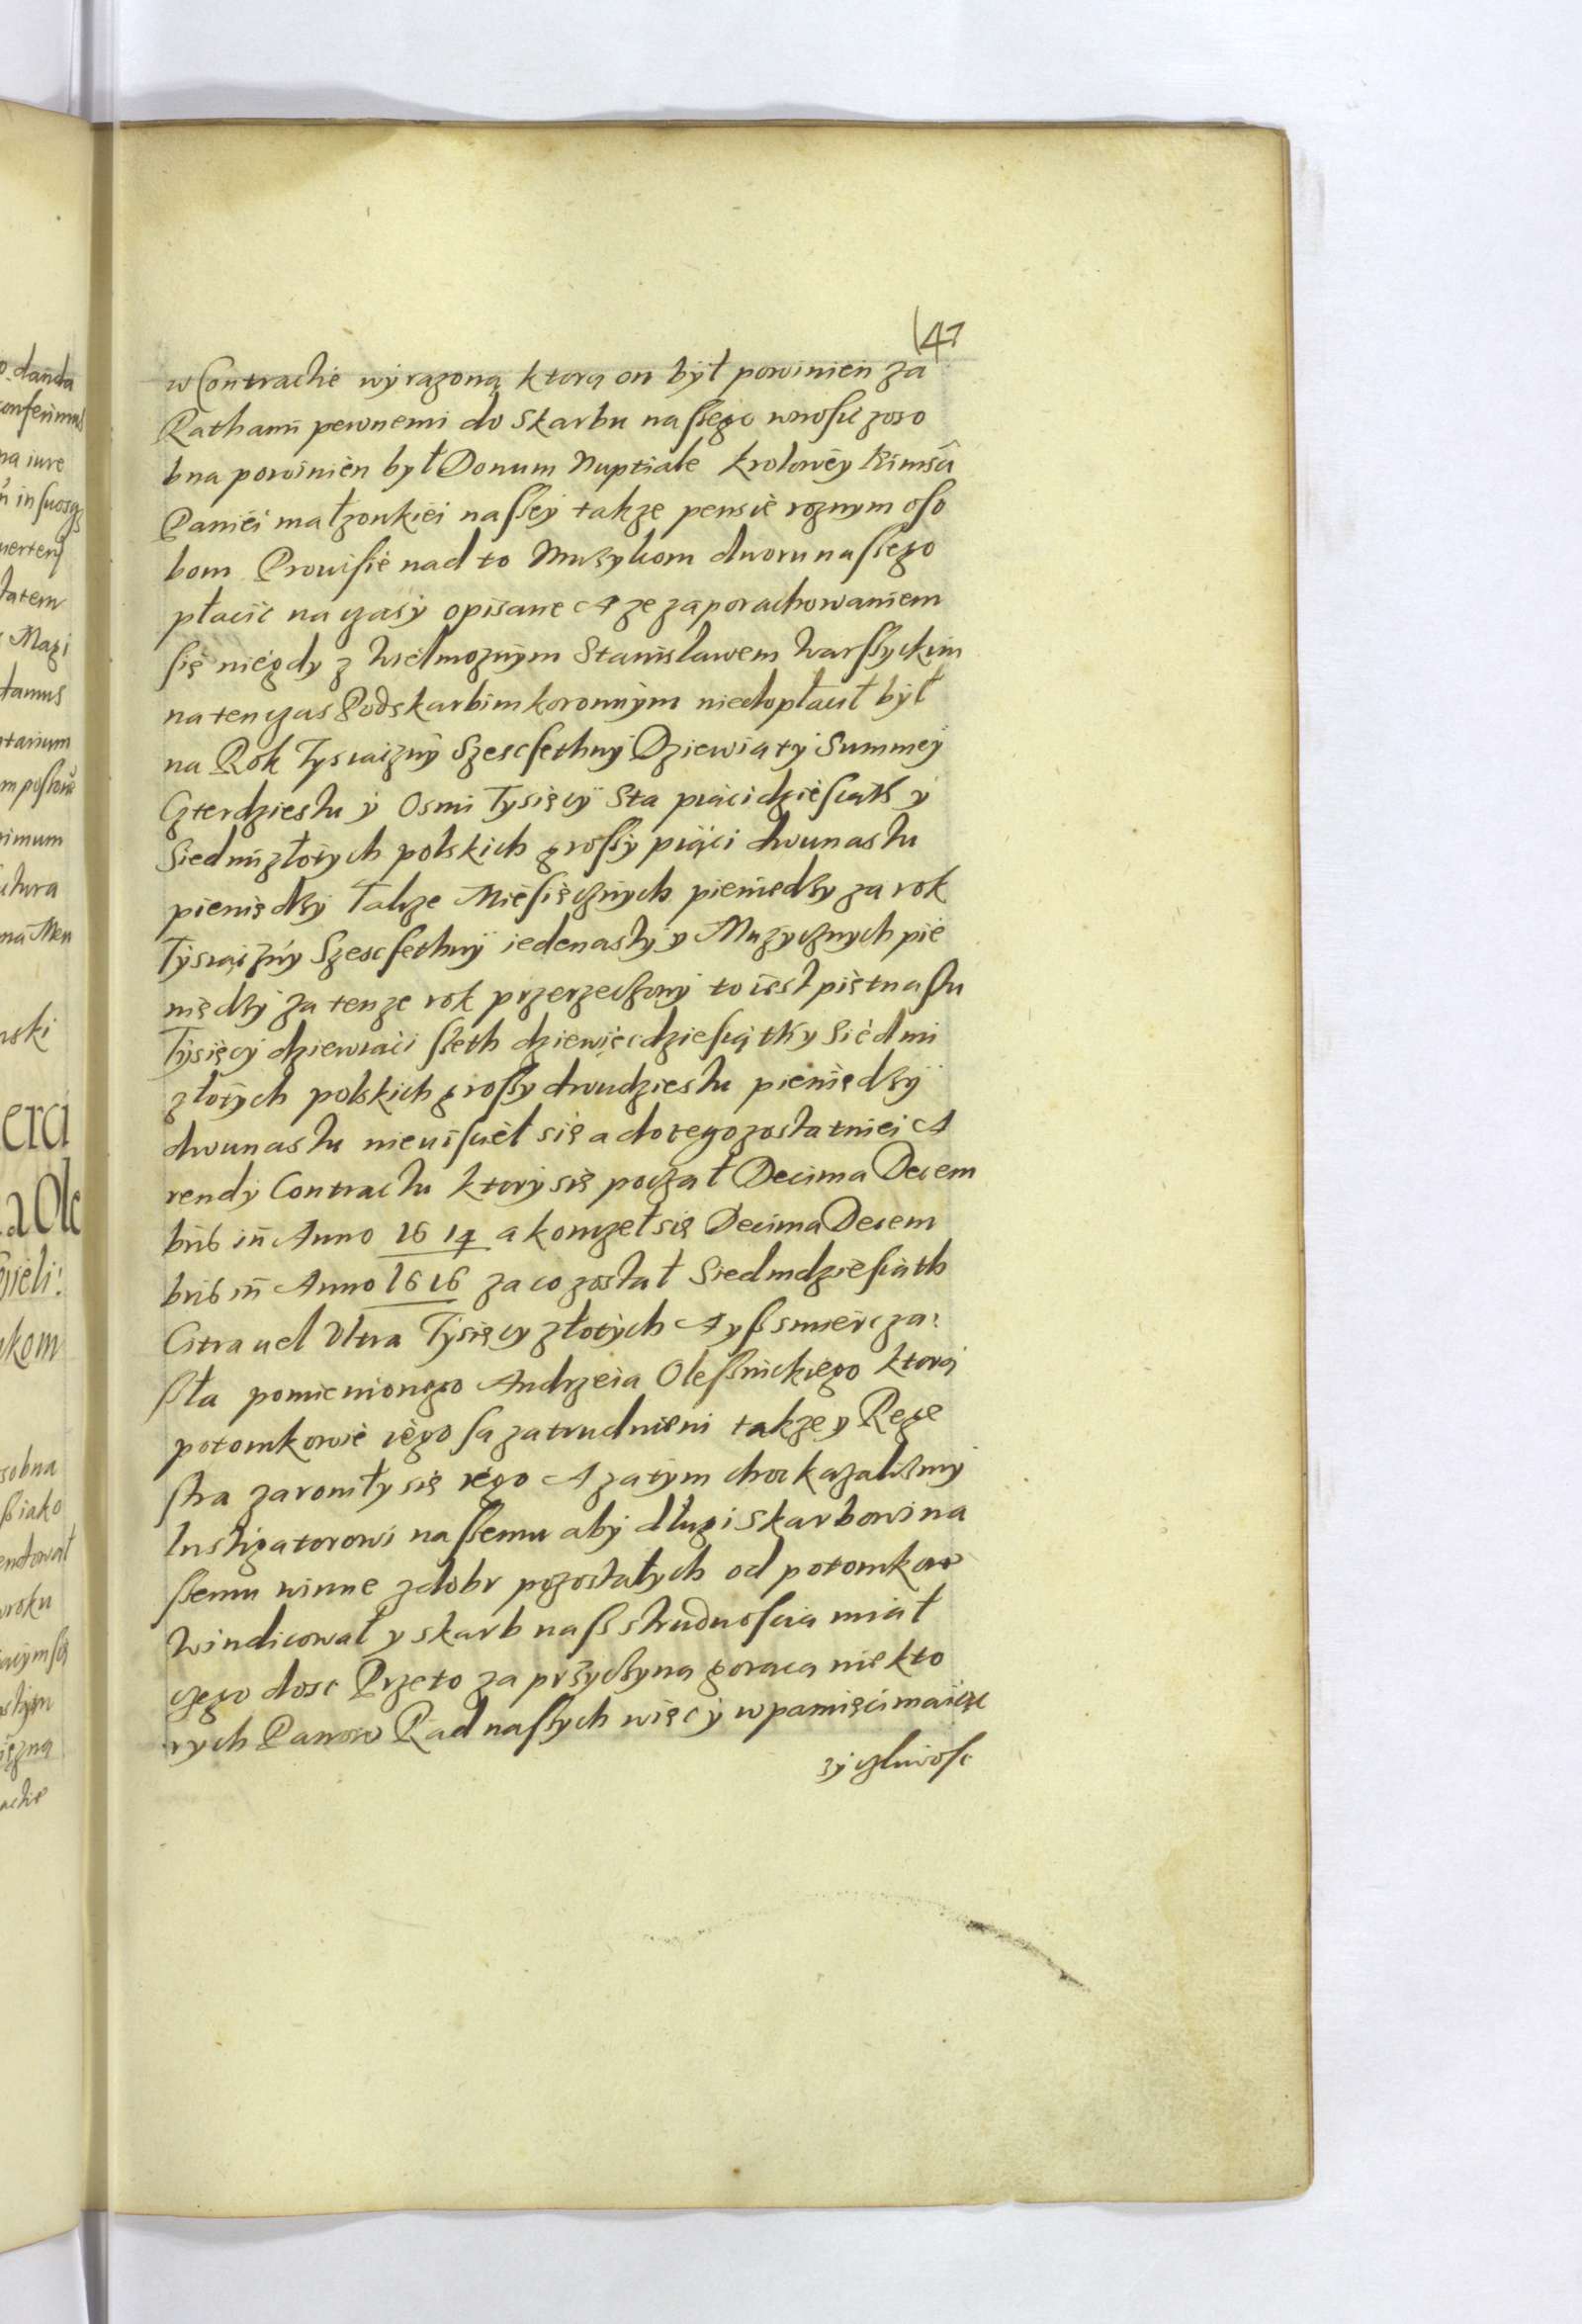 47
w Contractie wyrazoną ktorą on był powinien za
Rathami pewnemi do Skarbu naszego wnosic zoso
bna powinien był Donum Nuptiale krolowey
Paniei małzonkiei naszey takze pensie roznym oso
bom Prowisie nad to Muzykom dworu naszego
płacic na czasy opisane A ze zaporachowaniem
się niegdy z Wielmoznym Stanisławem Warszyckim
na ten czas Podskarbim koronnym niedopłacił był
na Rok Tysiaczny Szescsethny Dziewiąty Summey
Czterdziestu y Osmi Tysięcy Sta piącidziesiąth y
Siedmi złotych polskich groszy piąci dwunastu
pieniędzy Takze Miesięcznych pieniedzy za rok
Tysiączny Szescsethny iedenasty y Muzycznych pie
niędzy za tenze rok przerzeczony to iest piętnastu
Tysięcy dziewiąci szeth dziewięcdziesiąth y Siedmi
złotych polskich groszy dwudziestu pieniędzy
dwunastu nieuiscieł się a do tego zostatniei A
rendy Contractu ktory się począł Decima Decem
bris in Anno 1614 a konczeł się Decima Decem
bris in Anno 1616 za co został Siedmdziesiąth
Citra uel Vltra Tysięcy złotych A ysz smierc za
szła pomienionego Andrzeia Olesznickiego ktorą
potomkowie iego są zatrudnieni takze y Rege
stra zaroniły się iego A zatym choc kazalismy
Instigatorowi naszemu aby długi Skarbowi na
szemu winne zdobr pozostałych od potomkow
windicował y skarb nasz strudnoscią miał
czego dosc Przeto za przyczyna goraca niekto
rych Panow Rad naszych więc y wpamięci maiąc
zyczliwosc
o danda
conferimus
na iure
tatem
Magi
damus
ntarium
rimum
na Men
nski
erci
a Ole
ieli:
kom
sobna
sziako
endował
wroku